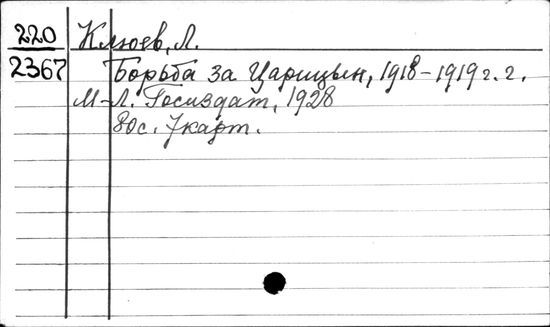 220 Клюев, Л.
2367 Борьба за Царицын, 1918-1919 г.г.
М-Л. Госиздат, 1928
80с. 7карт.